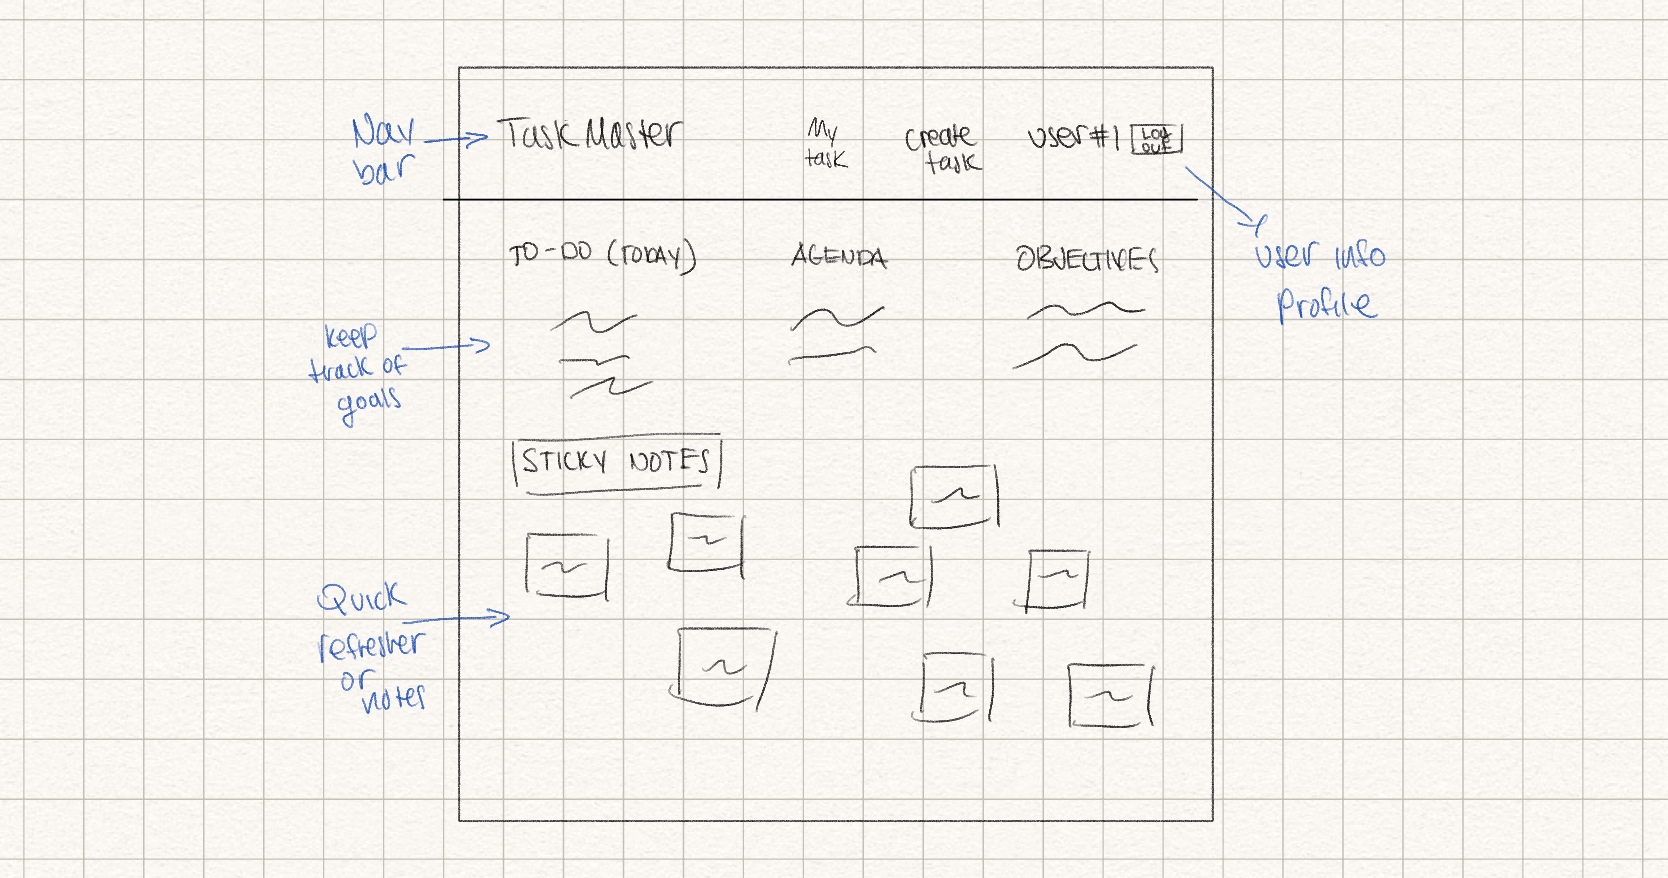 Nav
bar
Task Master
My
task
create
task
user #1
LOG
OUT
user info
Profile
TO-DO (TODAY)
AGENDA
OBJECTIVES
keep
track of
goals
STICKY NOTES
Quick
refresher
or
notes